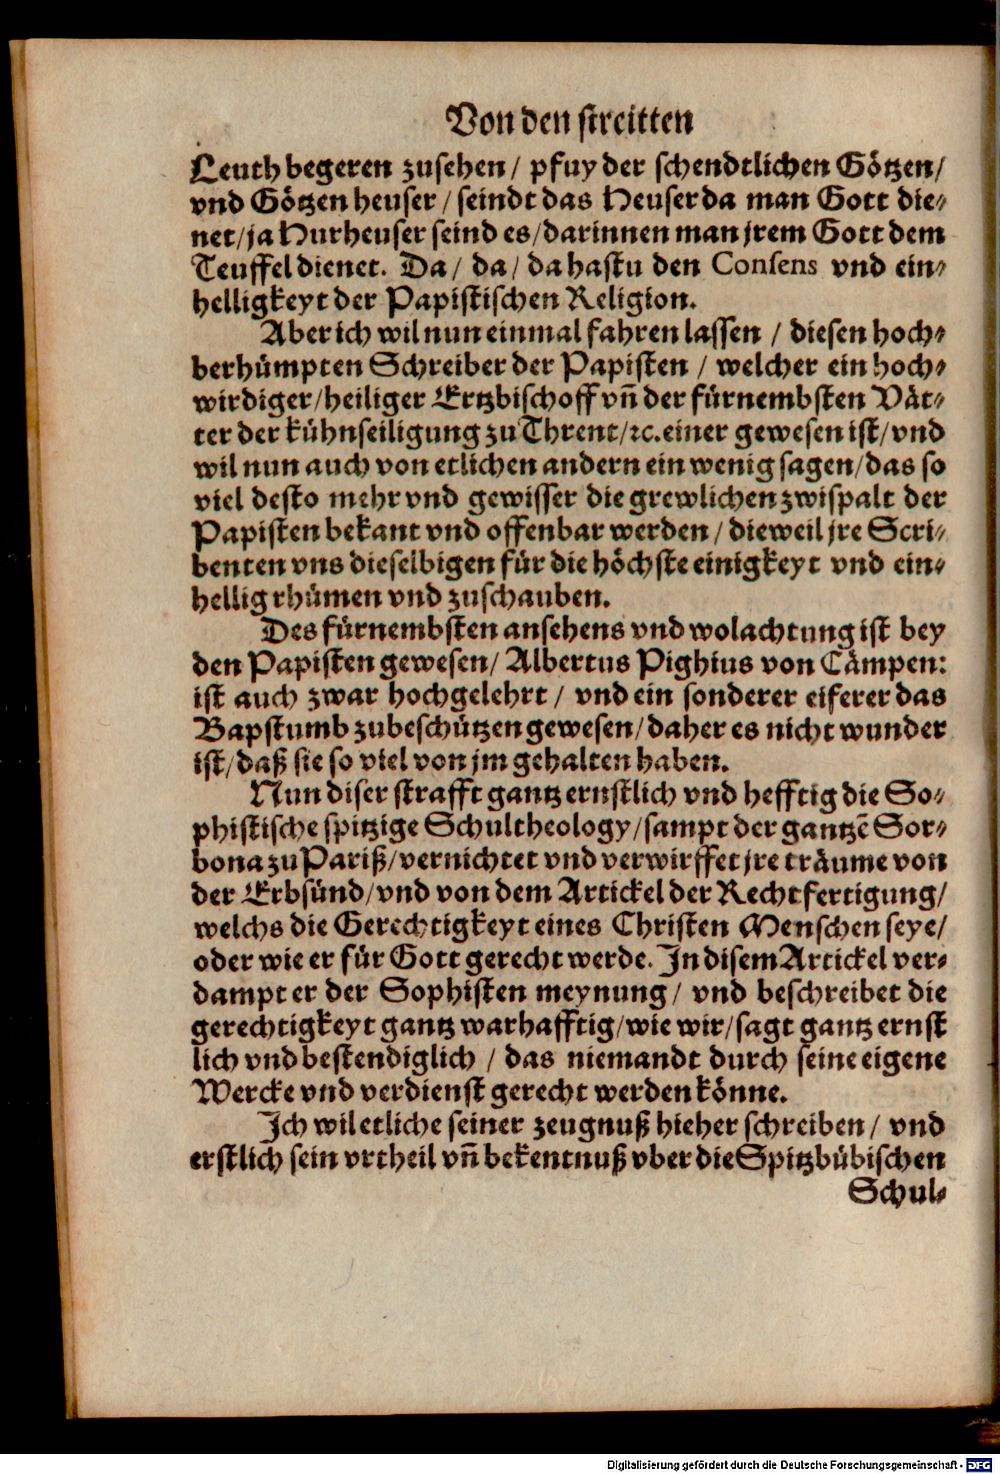 Von den streitten
Leuth begeren zusehen / pfuy der schendtlichen Götzen/
vnd Götzen heuser / seindt das Heuser da man Gott die⸗
net/ja Hurheuser seind es/darinnen man jrem Gott dem
Teuffel dienet. Da/ da/ da hastu den Consens vnd ein⸗
helligkeyt der Papistischen Religion.
Aber ich wil nun einmal fahren lassen / diesen hoch⸗
berhümpten Schreiber der Papisten / welcher ein hoch⸗
wirdiger/heiliger Ertzbischoff vñ der fürnembsten Vät⸗
ter der kühnseiligung zu Thrent/ꝛc. einer gewesen ist/vnd
wil nun auch von etlichen andern ein wenig sagen/das so
viel desto mehr vnd gewisser die grewlichen zwispalt der
Papisten bekant vnd offenbar werden / dieweil jre Scri⸗
benten vns dieselbigen für die höchste einigkeyt vnd ein⸗
hellig rhümen vnd zuschauben.
Des fürnembsten ansehens vnd wolachtung ist bey
den Papisten gewesen/ Albertus Pighius von Cämpen:
ist auch zwar hochgelehrt / vnd ein sonderer eiferer das
Bapstumb zubeschützen gewesen/daher es nicht wunder
ist/daß sie so viel von jm gehalten haben.
Nun diser strafft gantz ernstlich vnd hefftig die So⸗
phistische spitzige Schultheology/sampt der gantzē Sor⸗
bona zu Pariß/vernichtet vnd verwirffet jre träume von
der Erbsünd/vnd von dem Artickel der Rechtfertigung/
welchs die Gerechtigkeyt eines Christen Menschen seye/
oder wie er für Gott gerecht werde. In disem Artickel ver⸗
dampt er der Sophisten meynung/ vnd beschreibet die
gerechtigkeyt gantz warhafftig/wie wir/sagt gantz ernst
lich vnd bestendiglich / das niemandt durch seine eigene
Wercke vnd verdienst gerecht werden könne.
Ich wil etliche seiner zeugnuß hieher schreiben/ vnd
erstlich sein vrtheil vñ bekentnuß vber die Spitzbübischen
Schul⸗
Digitalisierung gefördert durch die Deutsche Forschungsgemeinschaft - DFG